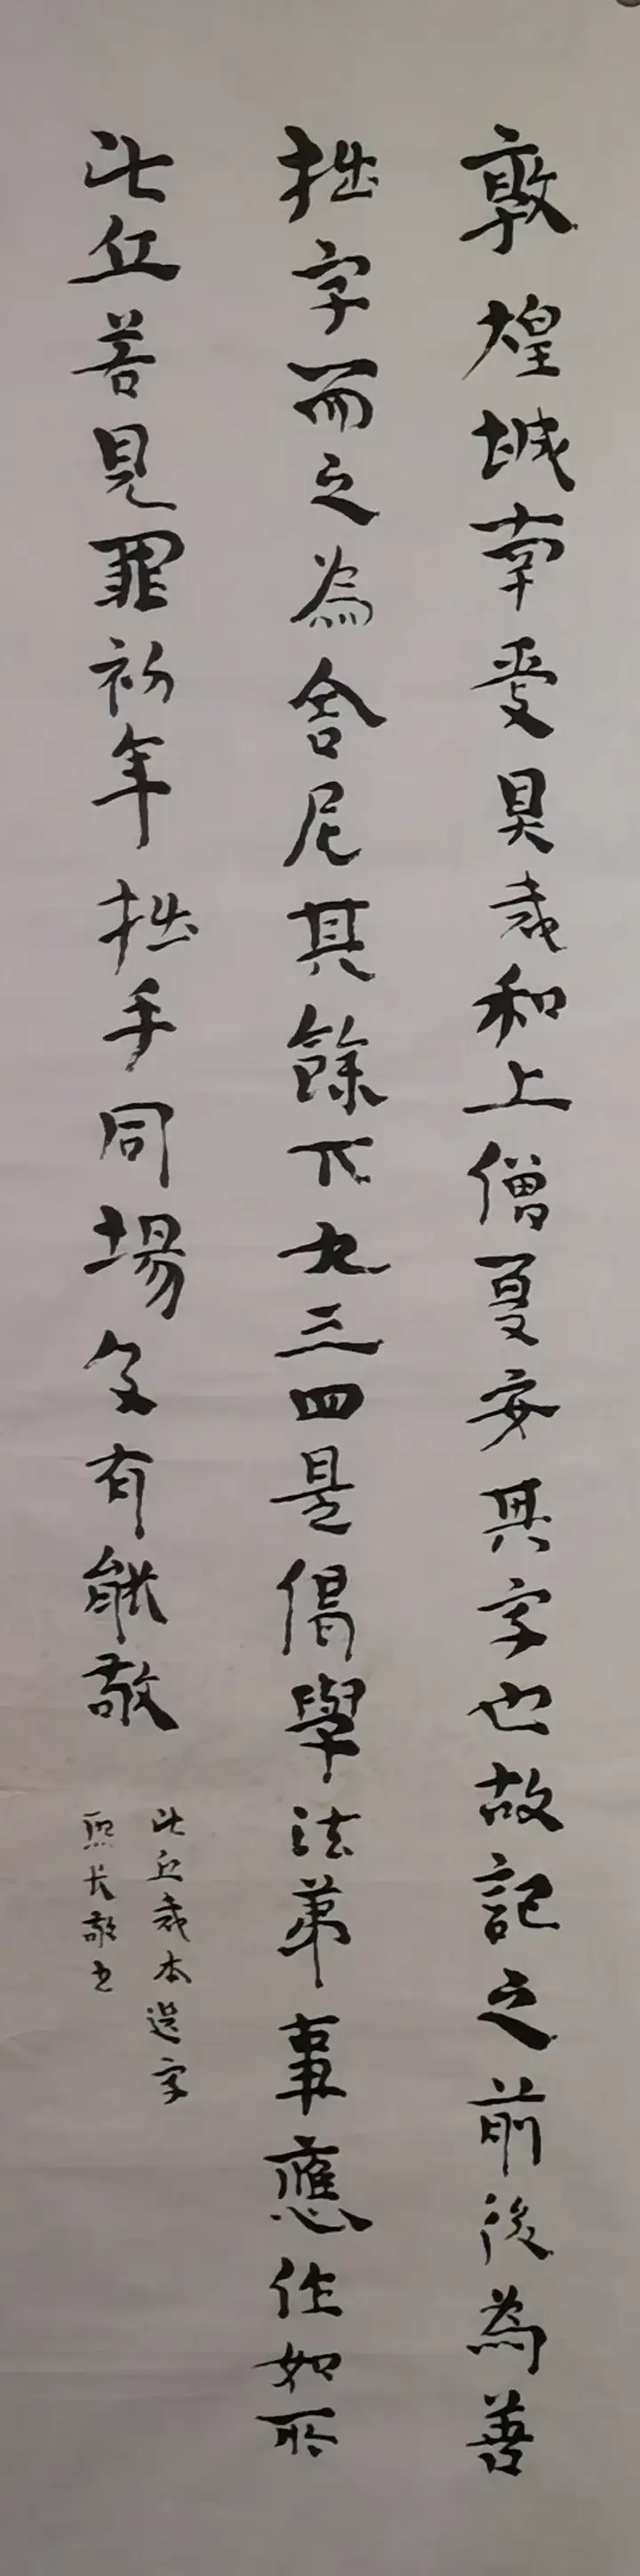 敦煌城南受具戒和上僧夏安其字也故記之前後為善
拙字而之為舍尼其餘下九三四是偈學法弟事應作如所
比丘若見罪初年拙手同場文有能敬
比丘戒本選字
熙長敬书